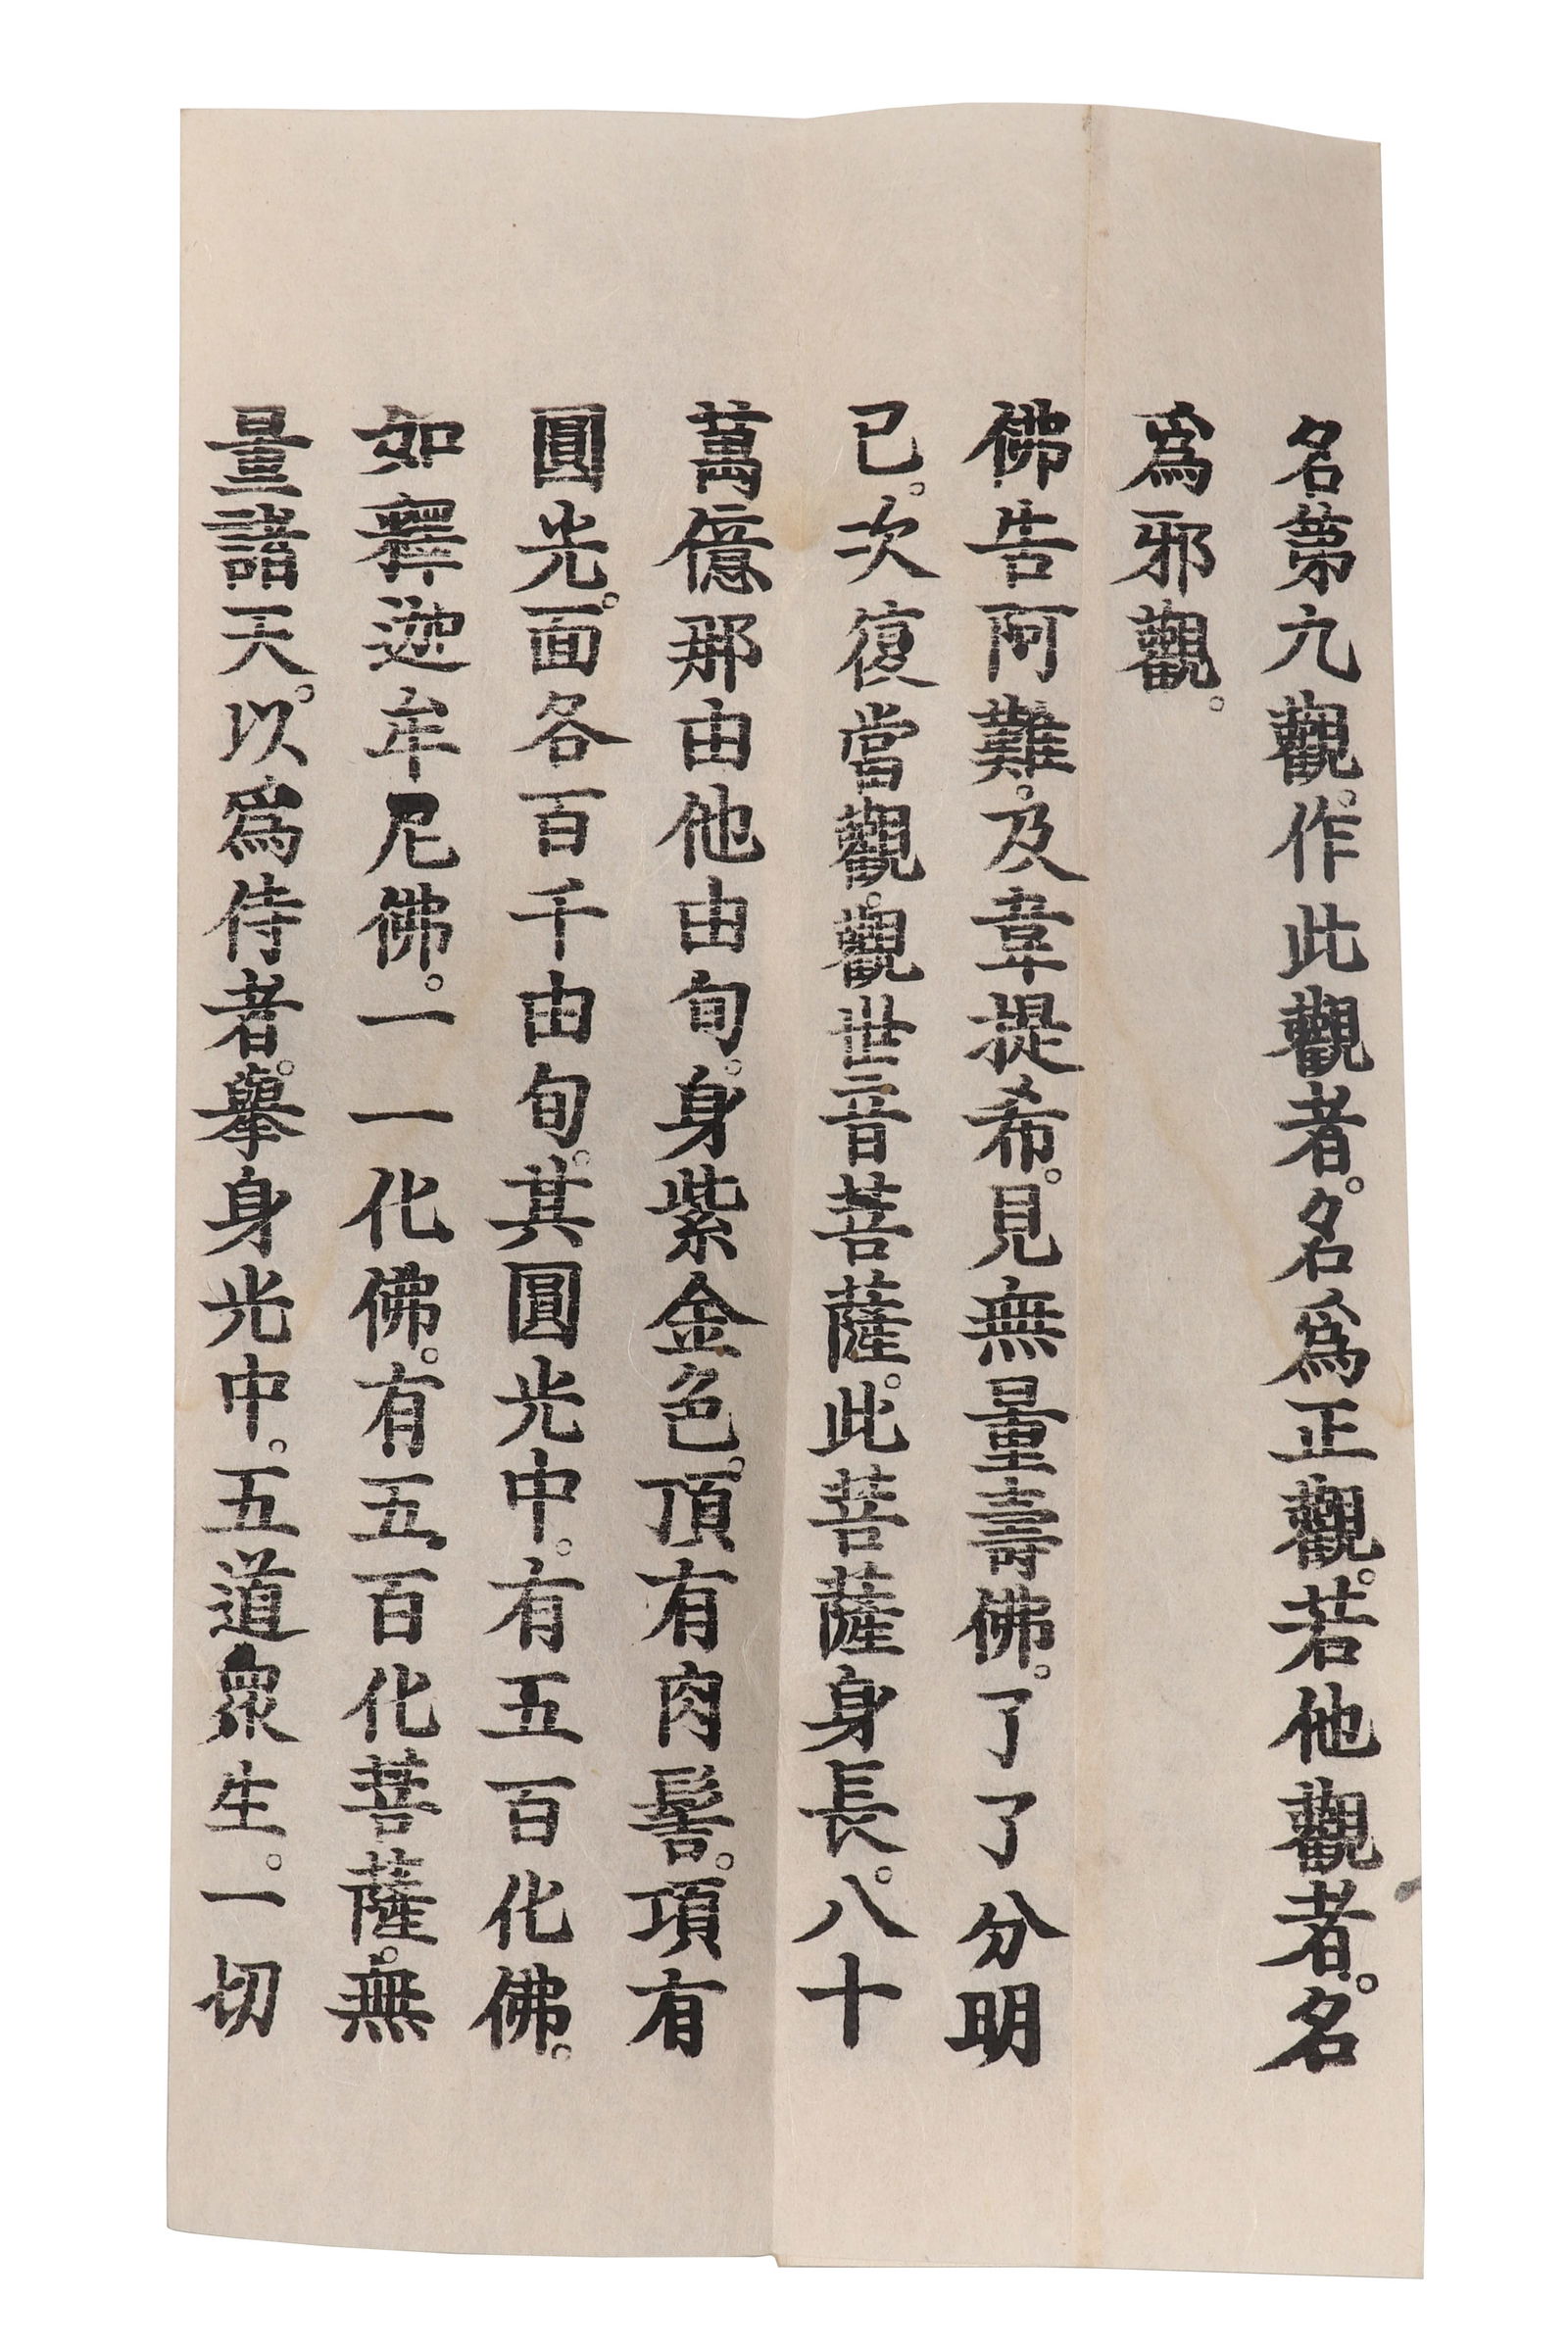 名第九觀。作此觀者。名為正觀。若他觀者。名
為邪觀。
佛告阿難。及韋提希。見無量壽佛。了了分明
已。次復當觀。觀世音菩薩。此菩薩身長。八十
萬億那由他由旬。身紫金色。頂有肉髻。項有
圓光。面各百千由旬。其圓光中。有五百化佛。
如釋迦牟尼佛。一一化佛。有五百化菩薩。無
量諸天。以為侍者。舉身光中。五道眾生。一切